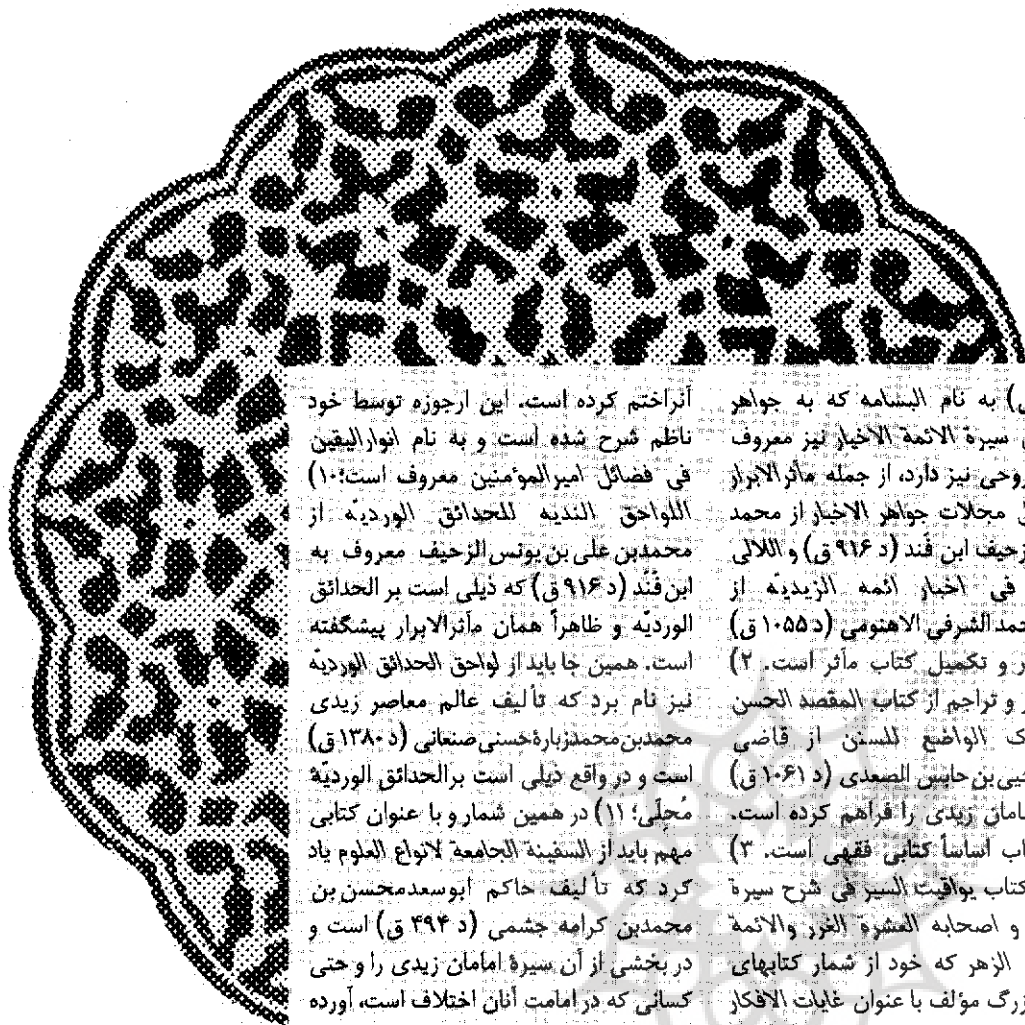 ی) به نام البسامه که به جواهر
سیرة الائمة الاخیار نیز معروف
روحی نیز دارد، از جمله مآثرالابرار
مجلات جواهر الاخبار از محمد
زحیف ابن فَند (د ۹۱۶ ق) و اللالی
فی اخبار ائمه الزیدیّه از
حمدالشرفی الاهنومی (د ۱۰۵۵ ق)
ر و تکمیل کتاب مآثر است. ۲)
ر و تراجم از کتاب المقصد الحسن
ک الواضع للسنن از قاضی
یی‌بن حابس الصعدی (د ۱۰۶۱ ق)
امامان زیدی را فراهم کرده است.
اب اساساً کتابی فقهی است. ۳)
کتاب یواقیت السیر فی شرح سیرة
و اصحابه العشرة الغرر والائمة
الزهر که خود از شمار کتابهای
زرگ مؤلف با عنوان غایات الافکار
آنراختم کرده است. این ارجوزه توسط خود
ناظم شرح شده است و به نام انوارالیقین
فی فضائل امیرالمؤمنین معروف است؛۱۰)
اللواحق الندیه للحدائق الوردیه از
محمدبن علی بن یونس الزحیف معروف به
ابن فَنْد (د ۹۱۶ ق) که ذیلی است بر الحدائق
الوردیّه و ظاهراً همان مآثرالابرار پیشگفته
است. همین جا باید از لواحق الحدائق الوردیّه
نیز نام برد که تألیف عالم معاصر زیدی
محمدبن محمدزبارهٔ حسنی صنعانی (د ۱۳۸۰ ق)
است و در واقع ذیلی است برالحدائق الوردیّهٔ
مُحلّی؛ ۱۱) در همین شمار و با عنوان کتابی
مهم باید از السفینة الجامعة لانواع العلوم یاد
کرد که تألیف حاکم ابوسعدمحسن بن
محمدبن کرامه جشمی (د ۴۹۴ ق) است و
در بخشی از آن سیرهٔ امامان زیدی را و حتی
کسانی که در امامت آنان اختلاف است، آورده